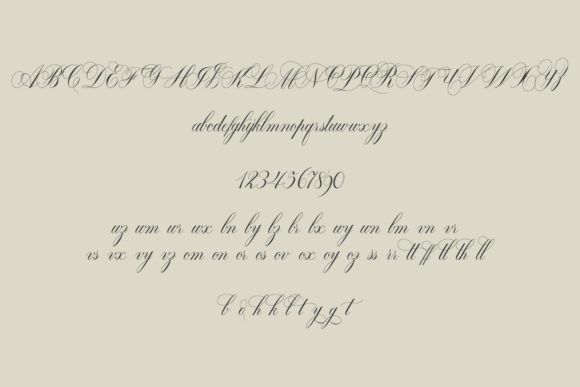 ABCDEFGHIJKLMNOPQRSTUVWXYZ
abcdefghijklmnopqrstuvwxyz
1234567890
uz wm wr wx bn by bz br bx wy wn bm vn vr
vs vx vy vz om on or os ov ox oy oz ss rr tt ff tl th ll
b o h k l t y g t